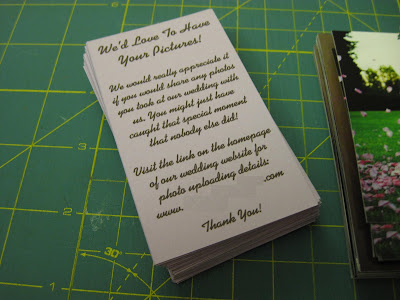 We'd Love To Have
Your Pictures!
We would really appreciate it
if you would share any photos
you took at our wedding with
us. You might just have
caught that special moment
that nobody else did!
Visit the link on the homepage
of our wedding website for
photo uploading details:
www. .com
Thank You!
3
2
1
1
2
30°